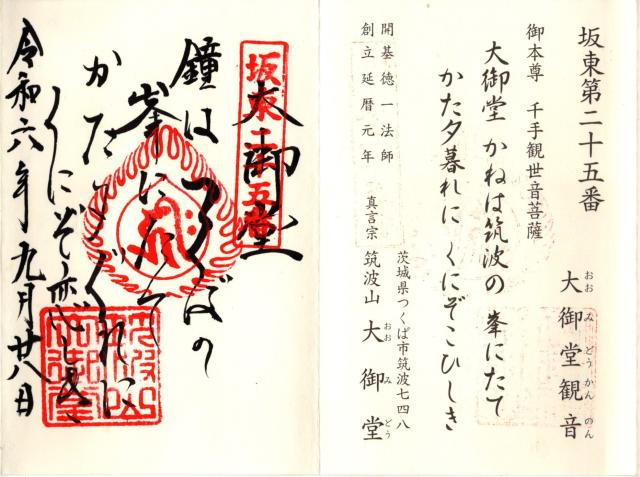 坂東第二十五番
大御堂観音
おおみどうかんのん
御本尊 千手観世音菩薩
大御堂 かねは筑波の 峯にたて
かた夕暮れに くにぞこひしき
開基徳一法師
創立延暦元年
茨城県つくば市筑波七四八
真言宗 筑波山 大御堂
おおみどう
坂東二十五番
大御堂
鐘はつくばの
峯にたて
かた夕ぐれに
くにぞ恋しき
令和六年九月廿八日